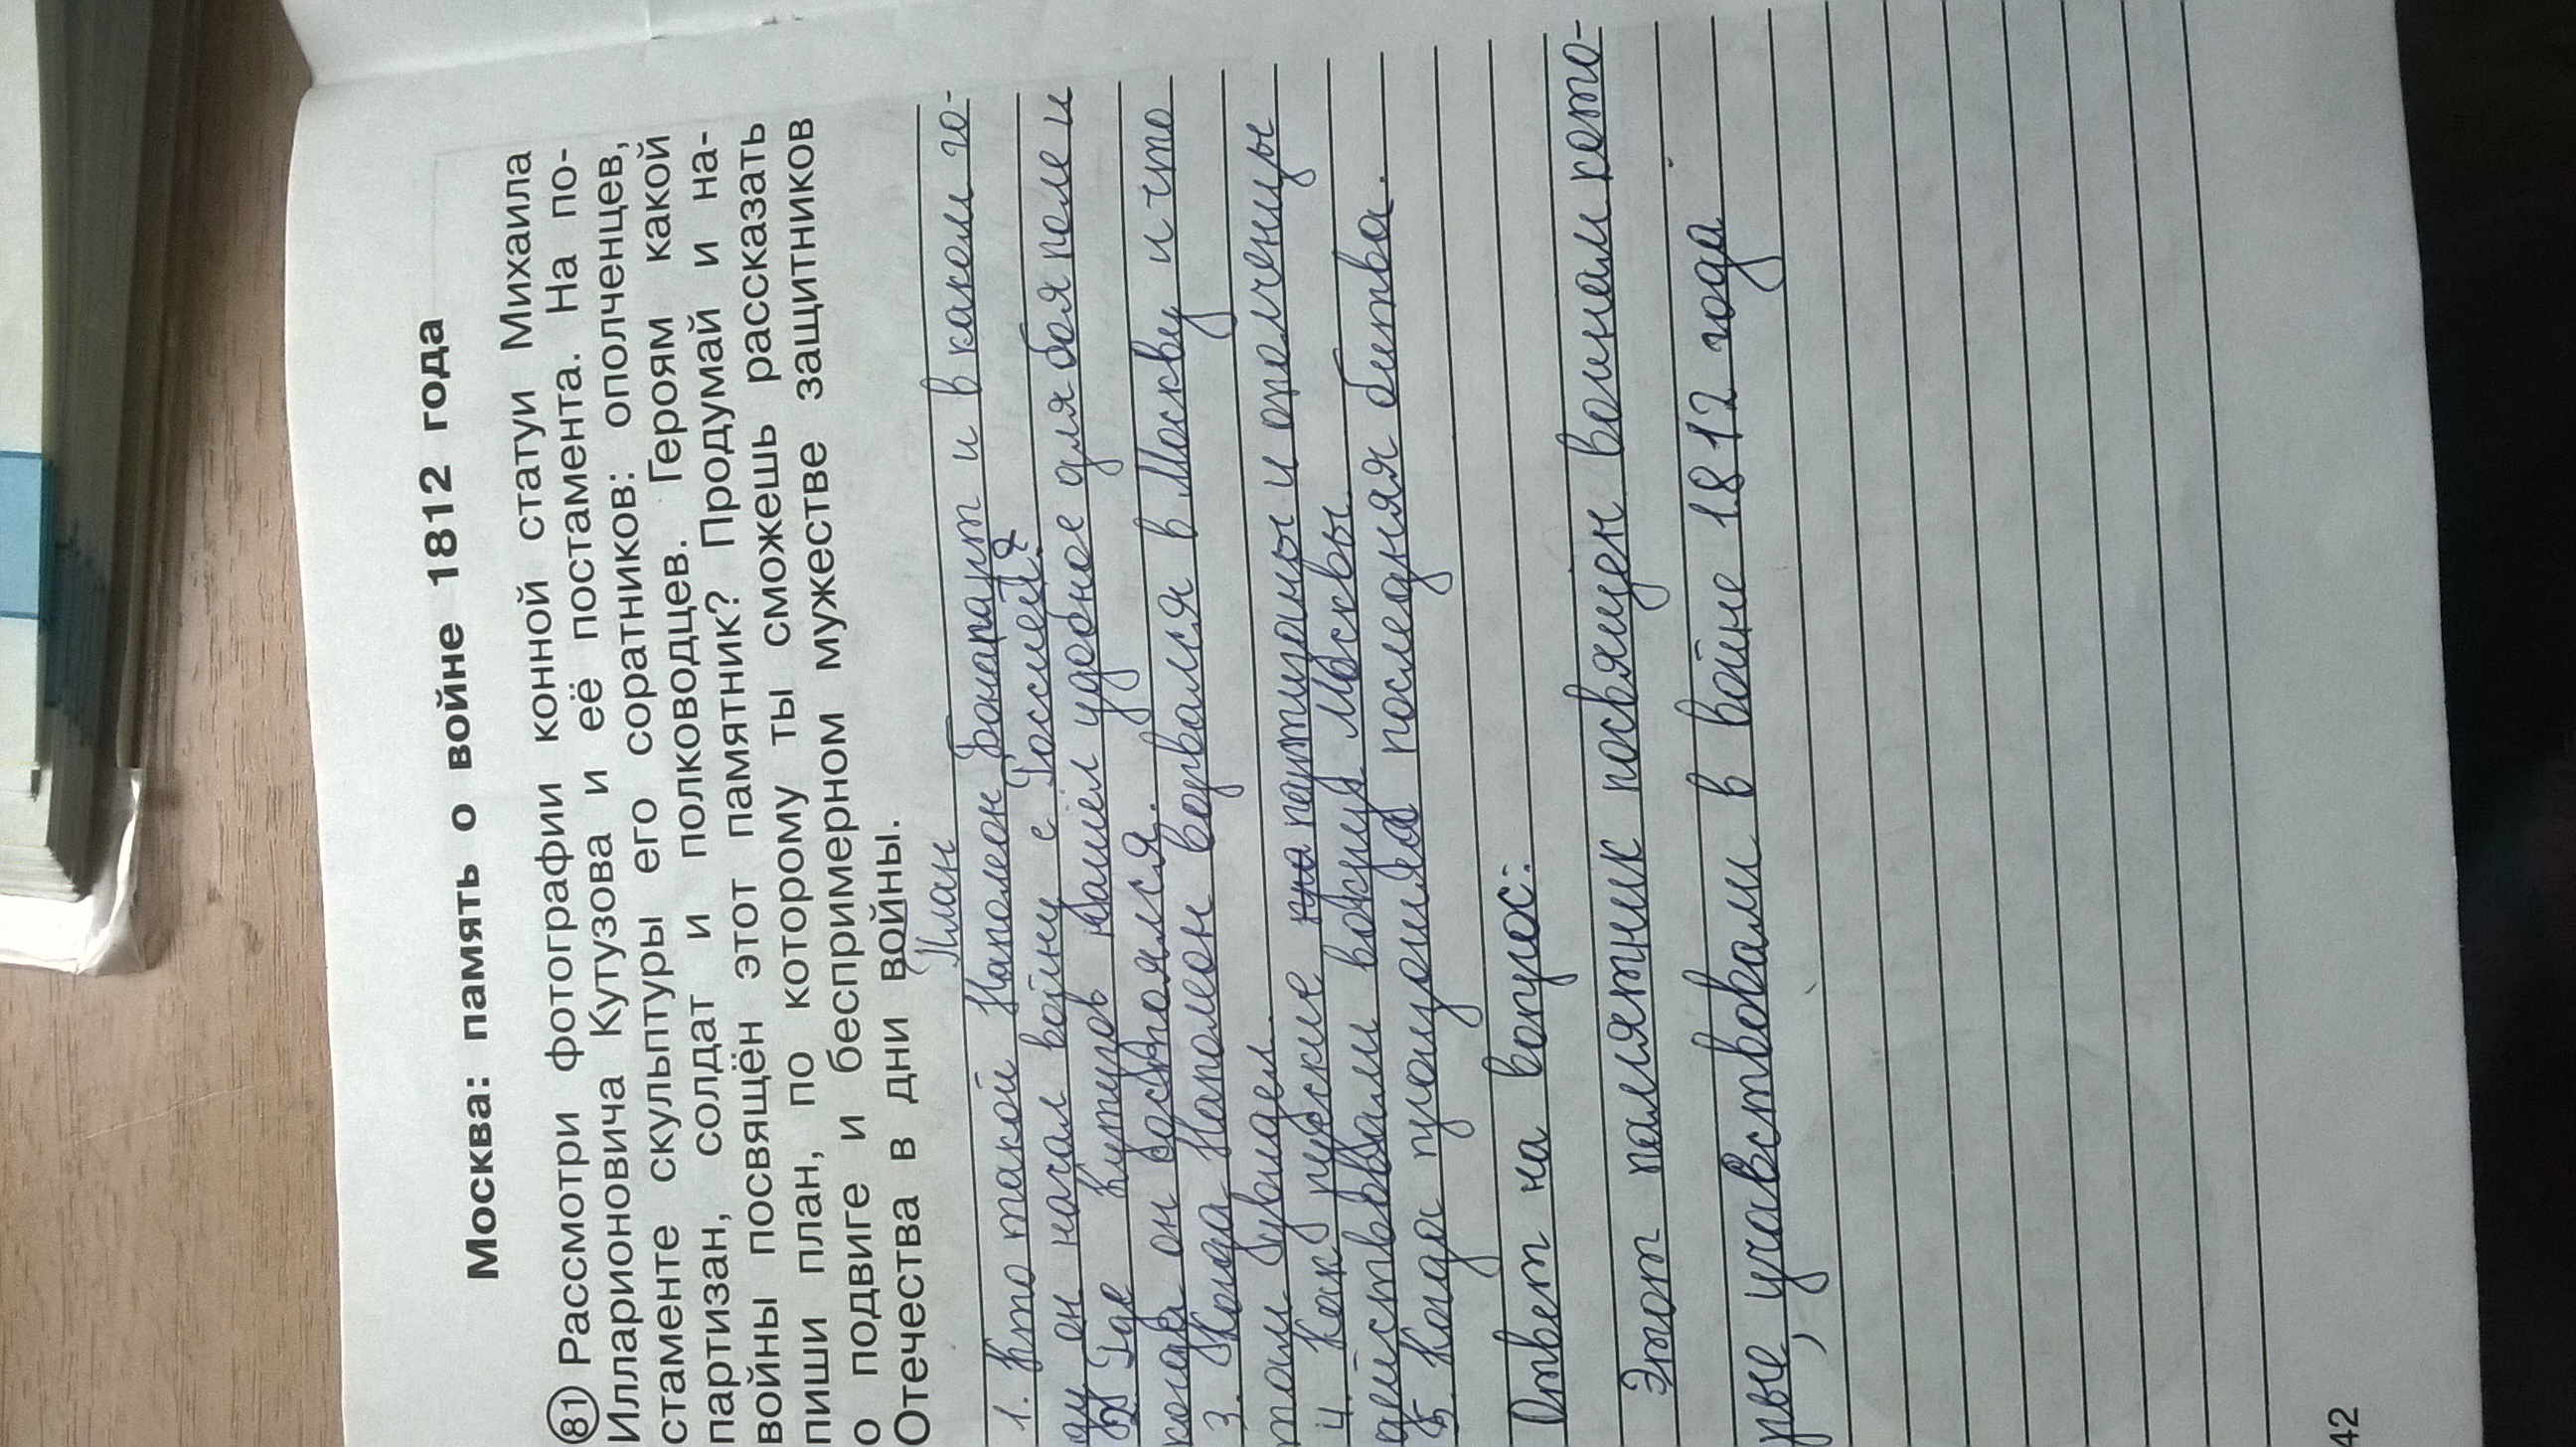 Москва: память о войне 1812 года
81 Рассмотри фотографии конной статуи Михаила
Илларионовича Кутузова и её постамента. На по-
стаменте скульптуры его соратников: ополченцев,
партизан, солдат и полководцев. Героям какой
войны посвящён этот памятник? Продумай и на-
пиши план, по которому ты сможешь рассказать
о подвиге и беспримерном мужестве защитников
Отечества в дни войны.
План
1. Кто такой Наполеон Бонапарт и в каком го-
ду он начал войну с Россией?
2. Где Кутузов нашёл удобное для боя поле и
когда он состоялся.
3. Когда Наполеон ворвался в Москву и что
там увидел.
4. Как руские партизаны и ополченцы
действовали вокруг Москвы.
5. Когда произошла последняя битва.
Ответ на вопрос:
Этот памятник посвящен воинам кото-
рые, учавствовали в войне 1812 года
42